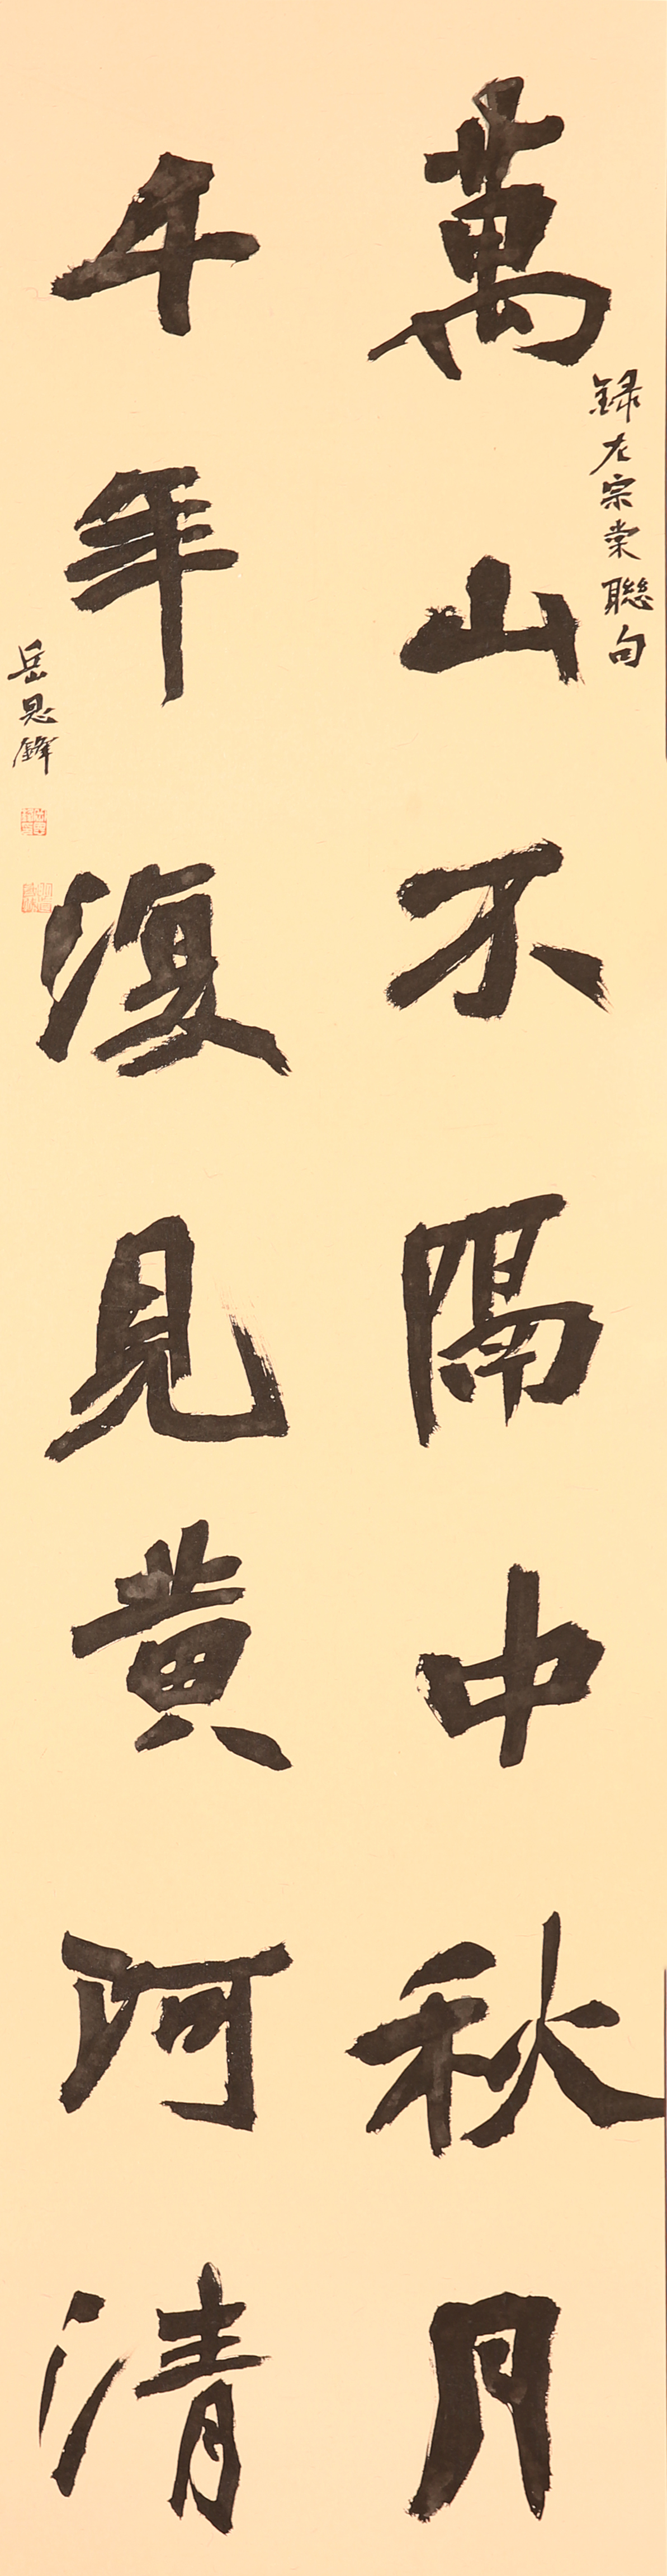 萬山不隔中秋月
錄左宗棠聯句
千年復見黃河清
岳恩鋒